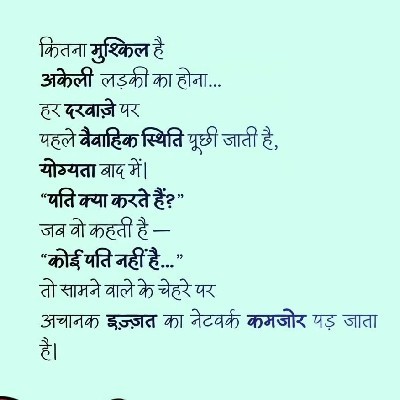 कितना मुश्किल है
अकेली लड़की का होना...
हर दरवाज़े पर
पहले वैवाहिक स्थिति पूछी जाती है,
योग्यता बाद में|
“पति क्या करते हैं?”
जब वो कहती है —
“कोई पति नहीं है...”
तो सामने वाले के चेहरे पर
अचानक इज़्ज़त का नेटवर्क कमजोर पड़ जाता
है|